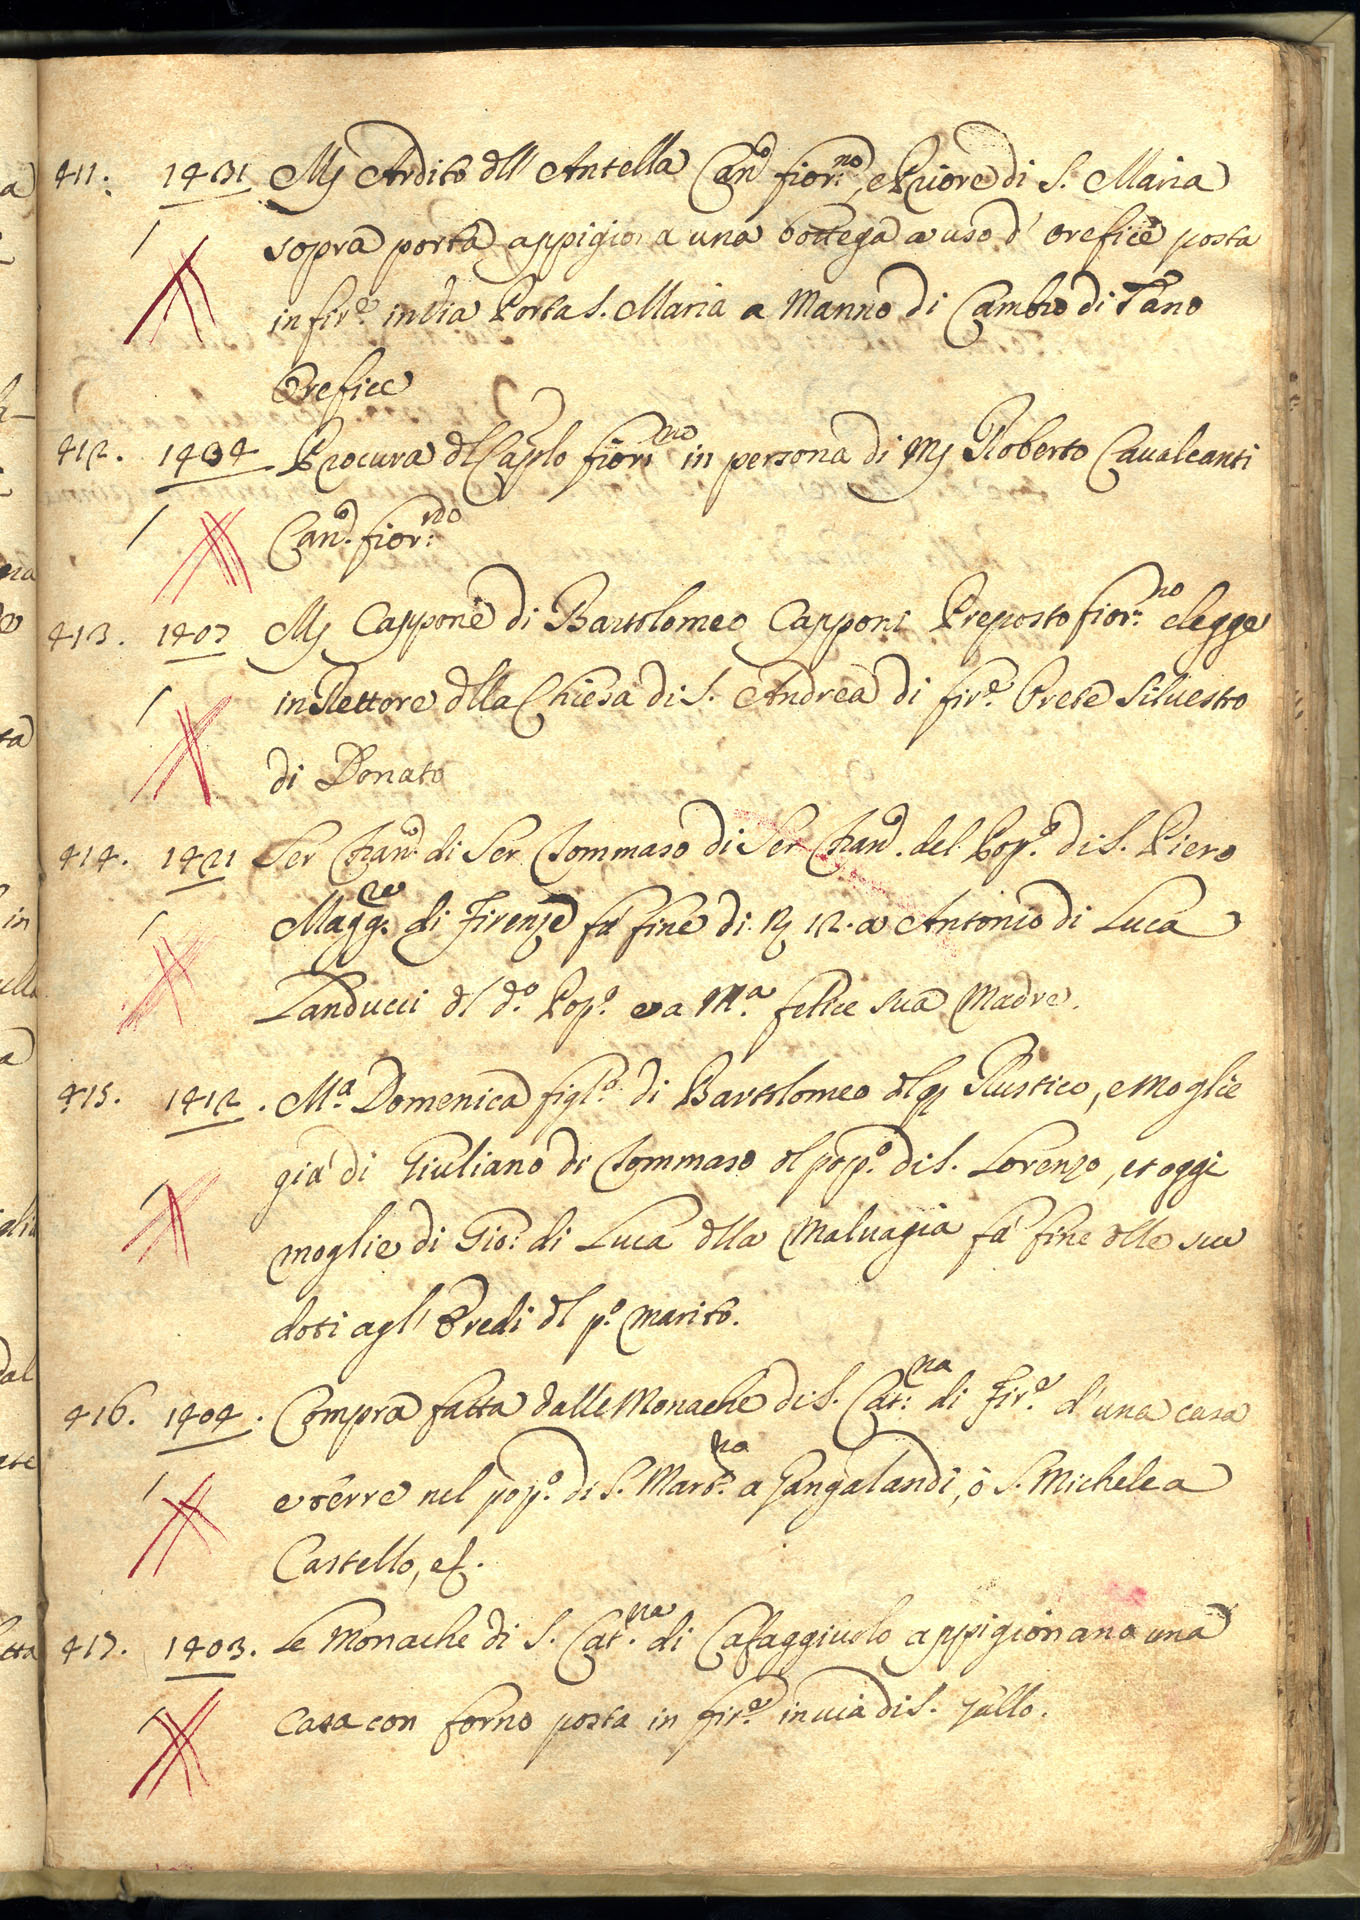 411. 1431 Mş Ardito dll' Antella Can.º fior.no, e Priore di S. Maria
sopra porta appigiona una bottega a uso d' orefice posta
in fir.e in Via Porta S. Maria a Manno di Cambio di Tano
Orefice
412. 1434 Procura dl Caplo fior.no in persona di Mş Roberto Cavalcanti
Can.º fior.no
413. 1407 Mş Cappone di Bartolomeo Capponi Preposto fior.no elegge
in Rettore dlla Chiesa di S. Andrea di fir.e Prete Silvestro
di Donato
414. 1421 Ser Fran.º di Ser Tommaso di Ser Fran.º del Pop.º di S. Piero
Magg.re di Firenze fa fine di 12. a Antonio di Luca
Landucci dl d.º Pop.º e a M.a felice sua Madre.
415. 1412. M.a Domenica figl.a di Bartolomeo dlq Rustico, e Moglie
già di Giuliano di Tommaso dl pop.º di S. Lorenzo, et oggi
moglie di Gio: di Luca dlla Malvagia fà fine dlle sue
doti agl' Eredi dl p.º marito.
416. 1404. Compra fatta dalle Monache di S. Cat.na di Fir.e d' una casa
e terre nel pop.º di S. Mart.no a Gangalandi, ò S. Michele a
Castello, e
417. 1403. Le Monache di S. Cat.na di Cafaggiuolo appigionano una
Casa con forno posta in fir.e in via di S. Gallo.